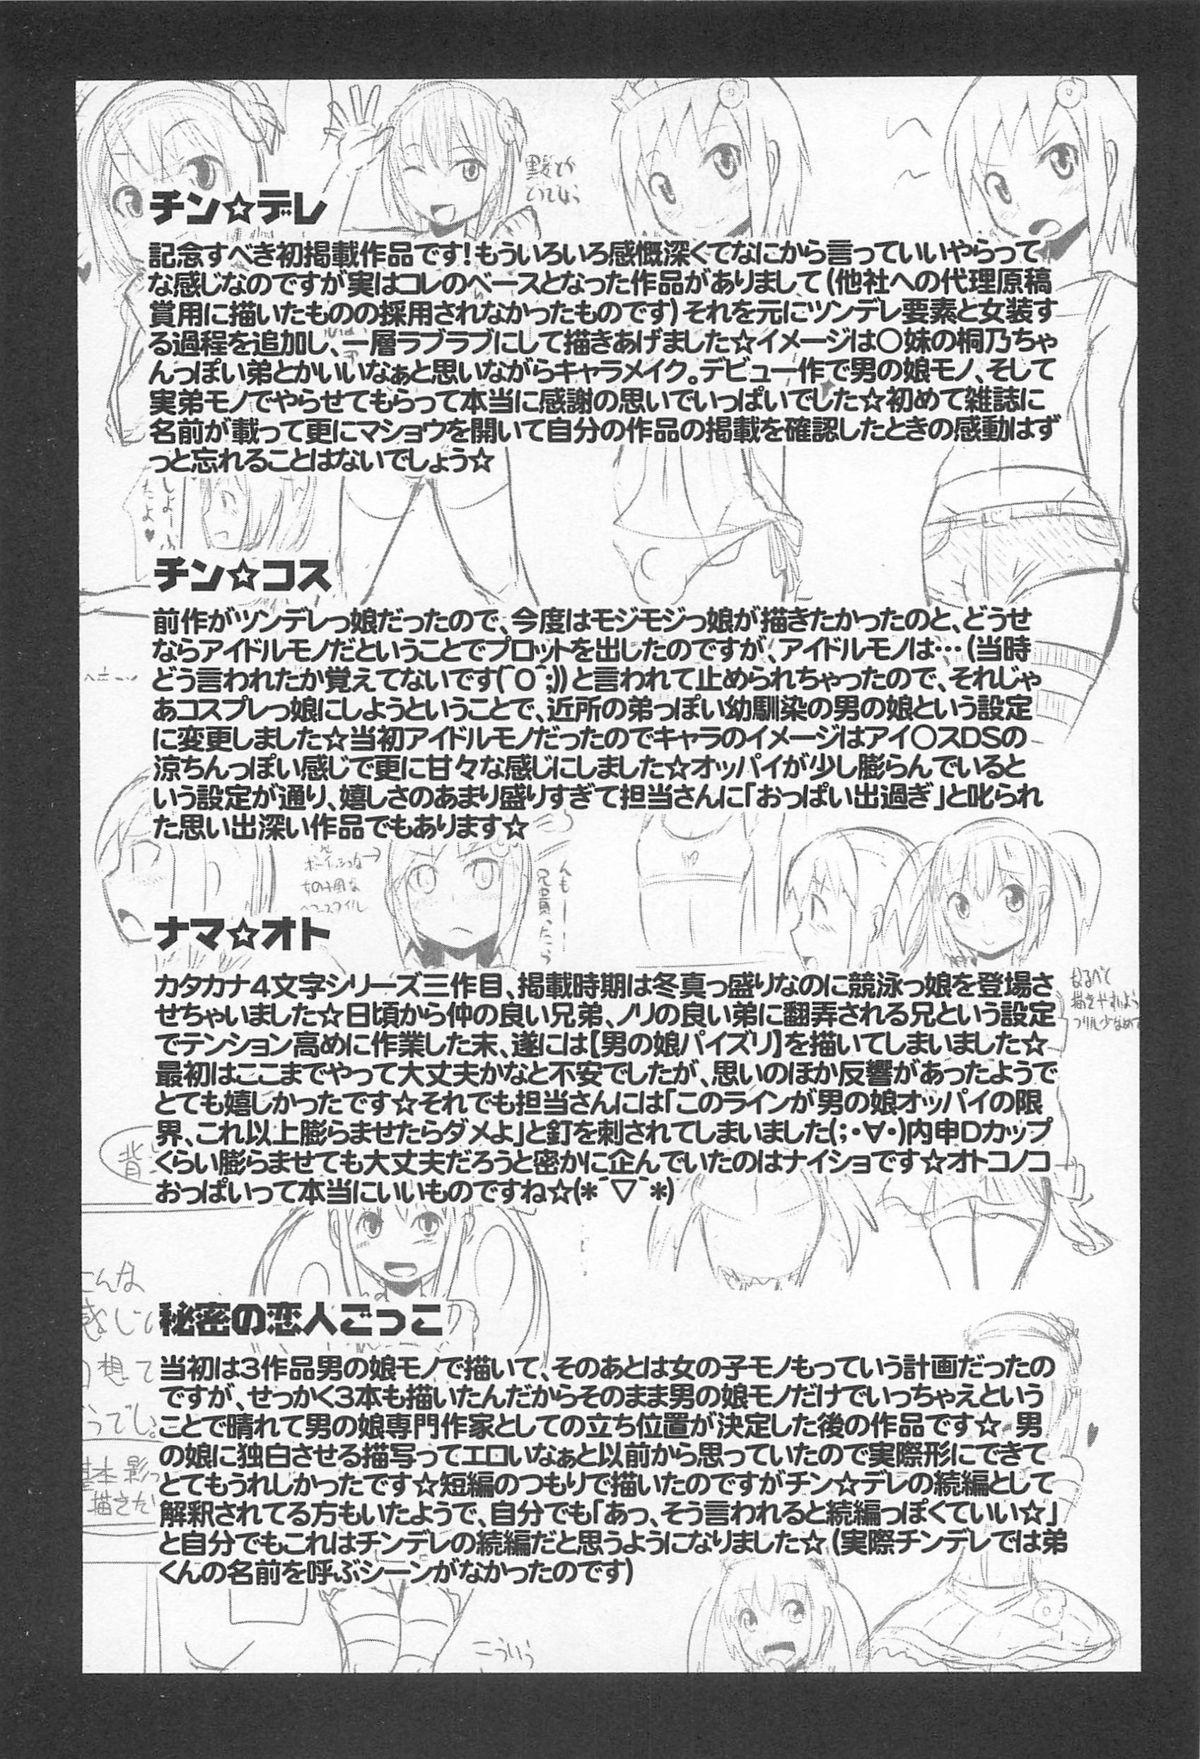 チン☆デレ
記念すべき初掲載作品です!もういろいろ感慨深くてなにから言っていいやらって
な感じなのですが実はコレのベースとなった作品がありまして(他社への代理原稿
賞用に描いたものの採用されなかったものです)それを元にツンデレ要素と女装す
る過程を追加し、一層ラブラブにして描きあげました☆イメージは○妹の桐乃ちゃ
んっぽい弟とかいいなぁと思いながらキャラメイク。デビュー作で男の娘モノ、そして
実弟モノでやらせてもらって本当に感謝の思いでいっぱいでした☆初めて雑誌に
名前が載って更にマショウを開いて自分の作品の掲載を確認したときの感動はず
っと忘れることはないでしょう☆
チン☆コス
前作がツンデレっ娘だったので、今度はモジモジっ娘が描きたかったのと、どうせ
ならアイドルモノだということでプロットを出したのですが、アイドルモノは…(当時
どう言われたか覚えてないです(´Д`;))と言われて止められちゃったので、それじゃ
あコスプレっ娘にしようということで、近所の弟っぽい幼馴染の男の娘という設定
に変更しました☆当初アイドルモノだったのでキャラのイメージはアイ○スDSの
涼ちんっぽい感じで更に甘々な感じにしました☆オッパイが少し膨らんでいると
いう設定が通り、嬉しさのあまり盛りすぎて担当さんに「おっぱい出過ぎ」と叱られ
た思い出深い作品でもあります☆
ナマ☆オト
カタカナ4文字シリーズ三作目、掲載時期は冬真っ盛りなのに競泳っ娘を登場さ
せちゃいました☆日頃から仲の良い兄弟、ノリの良い弟に翻弄される兄という設定
でテンション高めに作業した末、遂には【男の娘パイズリ】を描いてしまいました☆
最初はここまでやって大丈夫かなと不安でしたが、思いのほか反響があったようで
とても嬉しかったです☆それでも担当さんには「このラインが男の娘オッパイの限
界、これ以上膨らませたらダメよ」と釘を刺されてしまいました(;・∀・)内申Dカップ
くらい膨らませても大丈夫だろうと密かに企んでいたのはナイショです☆オトコノコ
おっぱいって本当にいいものですね☆(*´▽`*)
秘密の恋人ごっこ
当初は3作品男の娘モノで描いて、そのあとは女の子モノもっていう計画だったの
ですが、せっかく3本も描いたんだからそのまま男の娘モノだけでいっちゃえという
ことで晴れて男の娘専門作家としての立ち位置が決定した後の作品です☆ 男
の娘に独白させる描写ってエロいなぁと以前から思っていたので実際形にできて
とてもうれしかったです☆短編のつもりで描いたのですがチン☆デレの続編として
解釈されてる方もいたようで、自分でも「あっ、そう言われると続編っぽくていい☆」
と自分でもこれはチンデレの続編だと思うようになりました☆(実際チンデレでは弟
くんの名前を呼ぶシーンがなかったのです)
んもー
ボーイッシュな
なるべく
描きやすいよう
フリル少なめで
こんな
感じ
想て
描きた
こういう